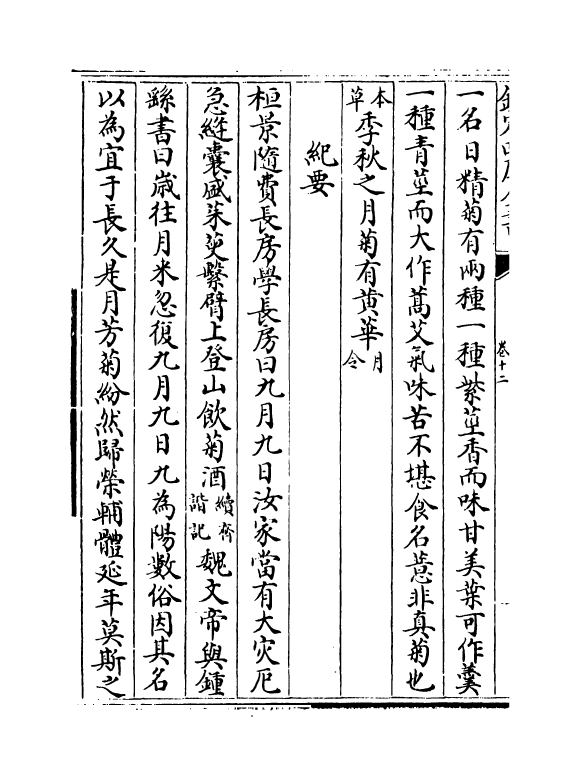 卷十二
一名日精菊有兩種一種紫莖香而味甘美葉可作羹
一種青莖而大作蒿艾氣味苦不堪食名薏非真菊也
本草季秋之月菊有黄華月令
紀要
桓景隨費長房學長房曰九月九日汝家當有大灾厄
急縫囊盛茱萸繫臂上登山飲菊酒續齊諧記魏文帝與鍾
繇書曰歲往月来忽復九月九日九為陽數俗因其名
以為宜于長久是月芳菊紛然歸榮輔體延年莫斯之